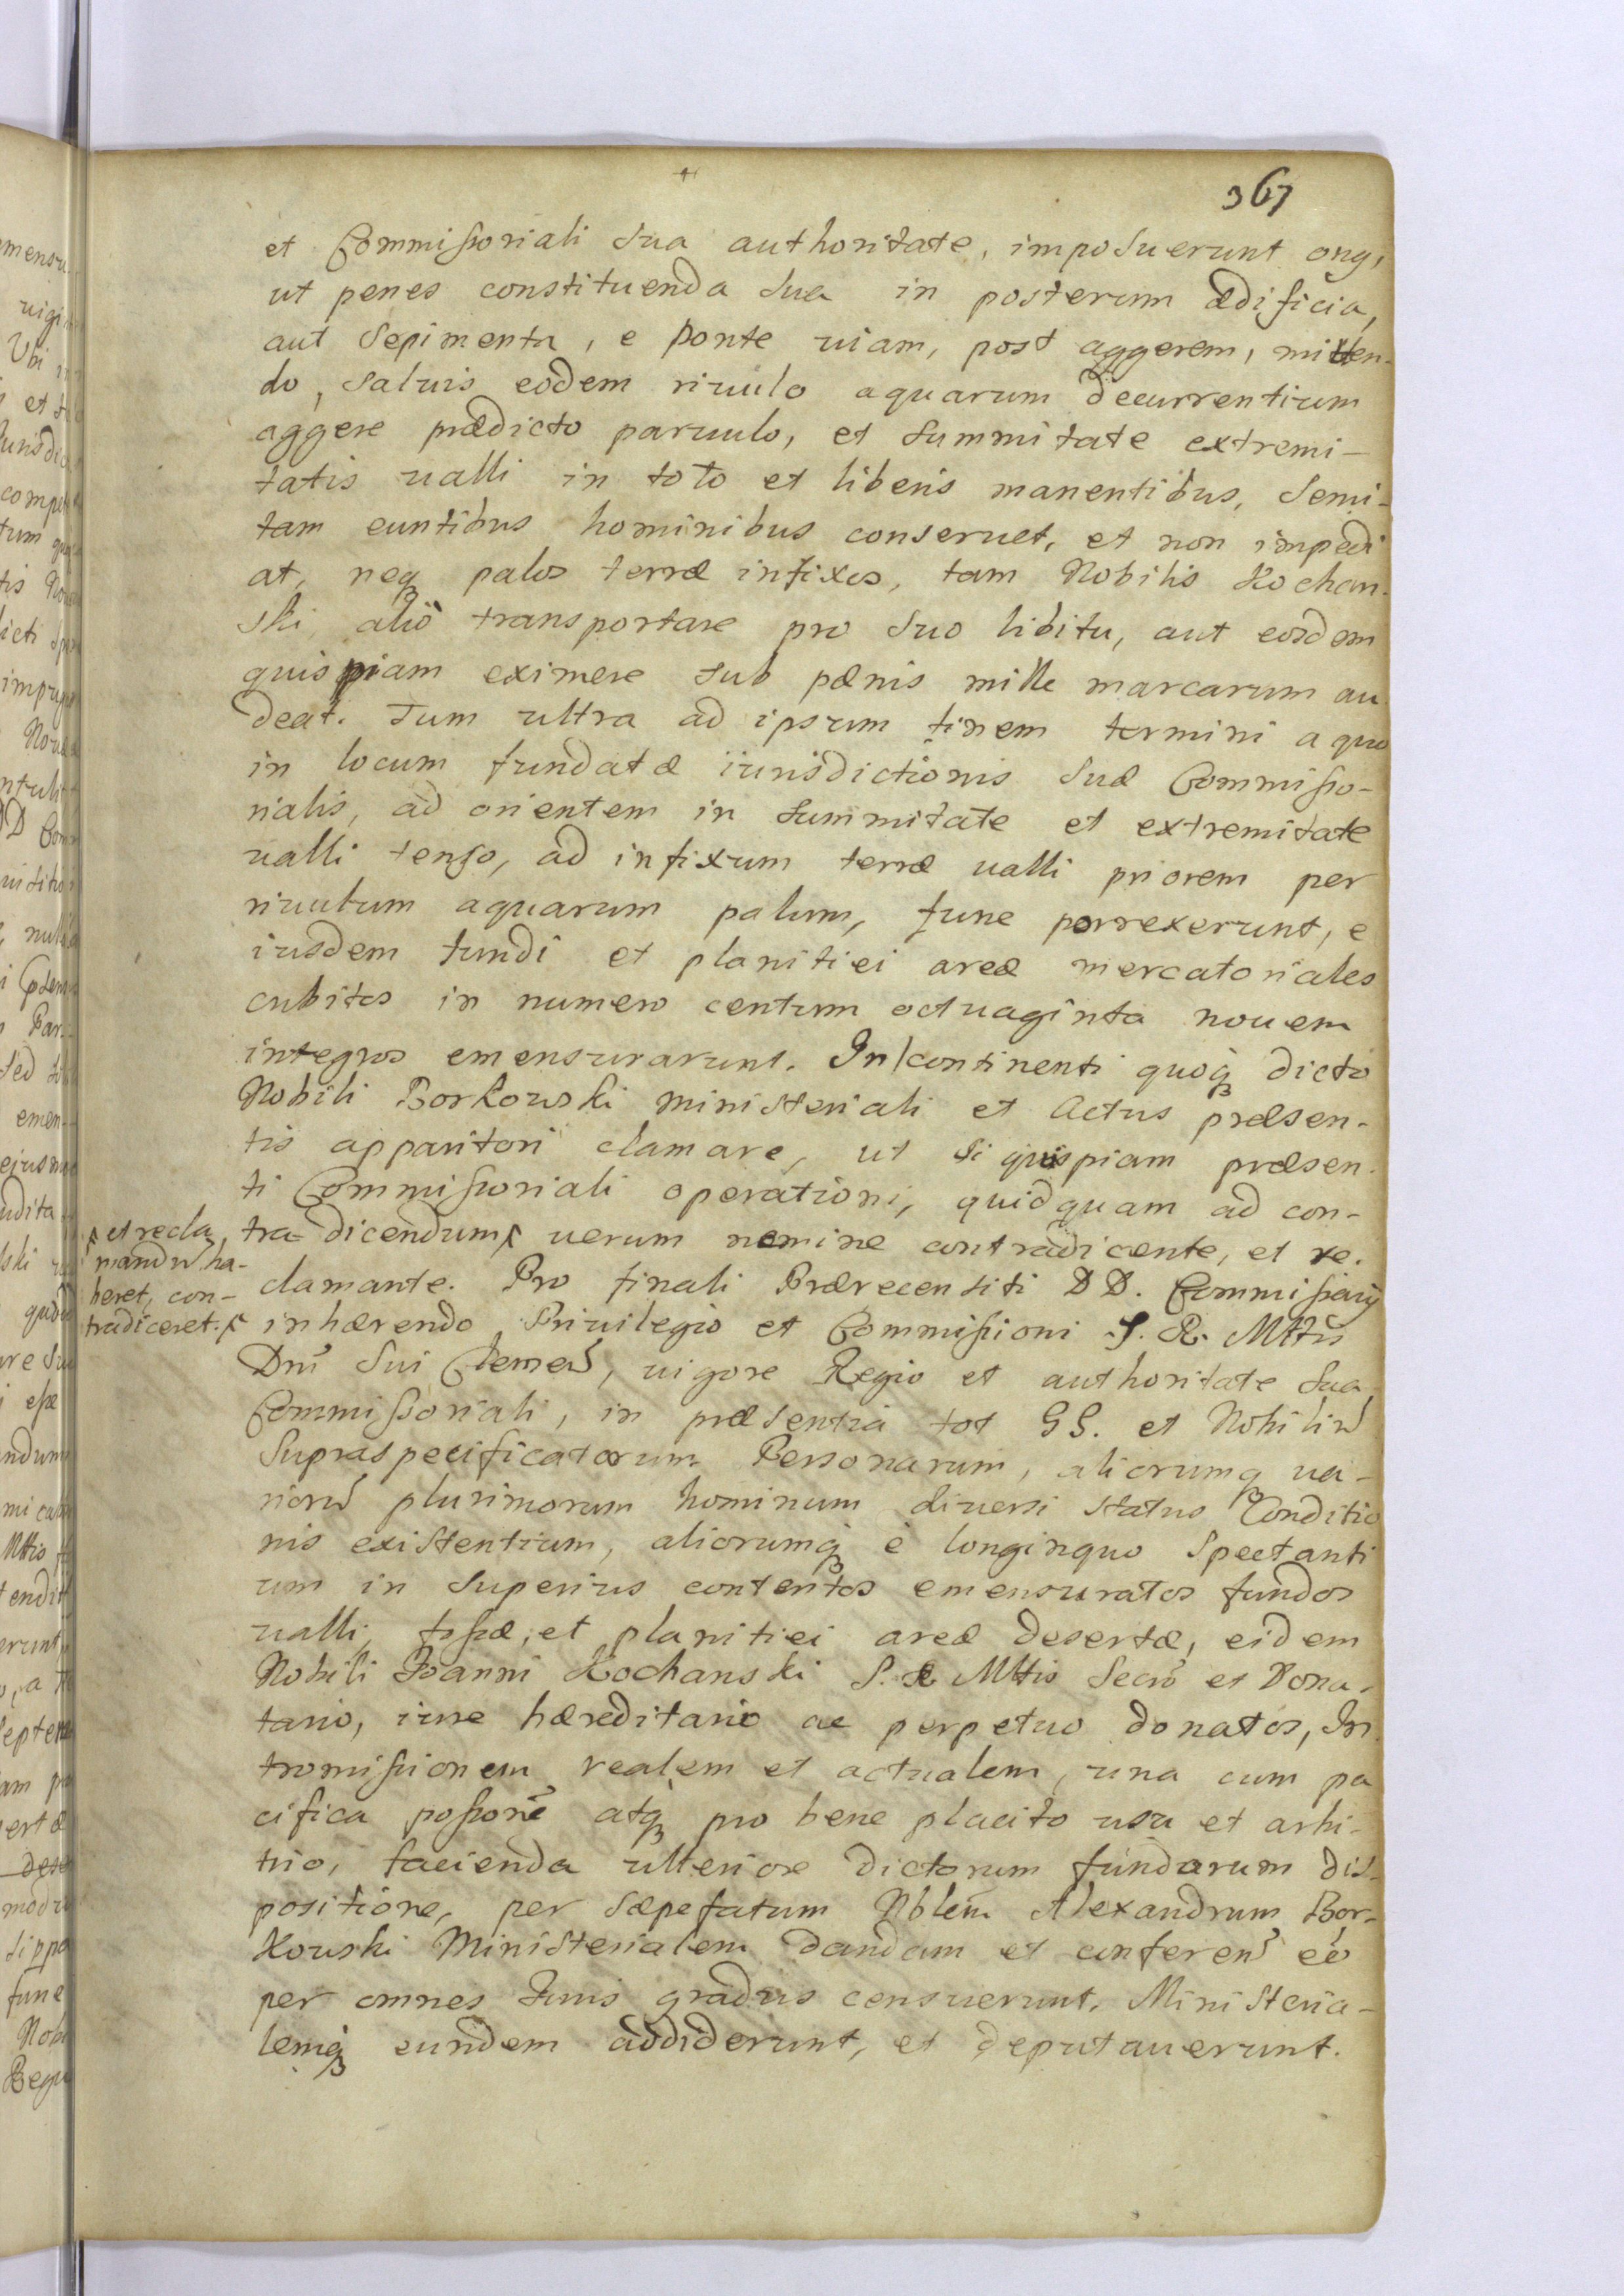 367
et Commissoriali sua authoritate, imposuerunt onq,
ut penes constituenda sua in posterum ædificia,
aut sepimenta, e ponte viam, post aggerem, mitten-
do, salvis eodem rivulo aquarum decurrentium
aggere prædicto parvulo, et summitate extremi-
tatis valli in toto et liberis manentibus, semi-
tam euntibus hominibus conservet, et non impedi
at, neq palos terræ infixos, tam Nobilis Kochan-
ski aliò transportare pro suo libitu, aut eosdem
quispiam eximere sub pænis mille marcarum au
deat. Tum ultra ad ipsum finem termini a quo
in locum fundatæ iurisdictionis suæ Commisso-
rialis, ad orientem in summitate et extremitate
valli tenso, ad infixum terræ valli priorem per
rivulum aquarum palum, fune porrexerunt, e
iusdem fundi et planitiei areæ mercatoriales
cubitos in numero centum octuaginta novem
integros emensurarunt. In continenti quoq dicto
Nobili Borkowski ministeriali et Actus præsen-
tis apparitori clamare, ut si quispiam præsen-
ti Commissoriali operationi, quidquam ad con-
tra dicendum verum nemine contradicente, et re-
et recla
mandũ ha-
beret, con-
tradiceret.
clamante. Pro finali Prærecensiti DD. Commissarij
inhærendo Privilegio et Commissioni S. R. Mttis
Dni sui Clemen, vigore Regio et authoritate sua
Commissoriali, in præsentia tot GG. et Nobiliũ
supraspecificatorum Personarum, aliorumq va-
riorũ plurimorum hominum diversi status Conditio
nis existentium, aliorumq è longinquo spectanti
um in superius contentos emensuratos fundos
valli, fossæ, et planitiei areæ desertæ, eidem
Nobili Joanni Kochanski S. R. Mttis Secrio et Dona-
tario, iure hæreditario ac perpetuo donatos, In
tromissionem realem et actualem, una cum pa
cifica possione atq pro bene placito usu et arbi-
trio, facienda ulteriore dictorum fundorum dis-
positione, per sæpefatum Nblem Alexandrum Bor-
kowski Ministerialem dandam et conferen eé
per omnes Juris gradus censuerunt, Ministeria-
lemq eundem addiderunt, et deputaverunt.